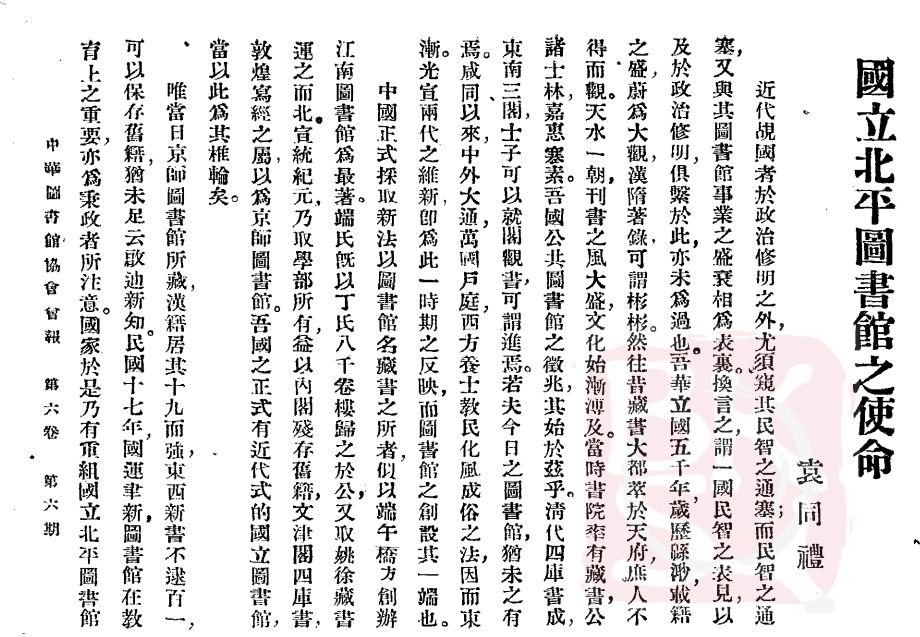 國立北平圖書館之使命
袁同禮
近代覘國者於政治修明之外，尤須窺其民智之通塞；而民智之通
塞，又與其圖書館事業之盛衰相爲表裏。換言之，謂一國民智之表見，以
及於政治修明，俱繫於此，亦未爲過也。吾華立國五千年，歲歷緜渺，載籍
之盛，蔚爲大觀，漢隋著錄，可謂彬彬。然往昔藏書大都萃於天府，庶人不
得而觀。天水一朝，刊書之風大盛，文化始漸溥及。當時書院率有藏書，公
諸士林，嘉惠寒素。吾國公共圖書館之徵兆，其始於茲乎。清代四庫書成，
東南三閣，士子可以就閣觀書，可謂進焉。若夫今日之圖書館，猶未之有
焉。咸同以來，中外大通，萬國戶庭，西方養士教民化風成俗之法，因而東
漸。光宣兩代之維新，卽爲此一時期之反映，而圖書館之創設其一端也。
中國正式採取新法以圖書館名藏書之所者，似以端午橋方創辦
江南圖書館爲最著。端氏旣以丁氏八千卷樓歸之於公，又取姚徐藏書
運之而北。宣統紀元，乃取學部所有，益以內閣殘存舊籍，文津閣四庫書，
敦煌寫經之屬，以爲京師圖書館。吾國之正式有近代式的國立圖書館，
當以此爲其椎輪矣。
唯當日京師圖書館所藏，漢籍居其十九而強，東西新書不逮百一，
可以保存舊籍，猶未足云啟迪新知。民國十七年，國運聿新，圖書館在教
育上之重要，亦爲秉政者所注意。國家於是乃有重組國立北平圖書館
中華圖書館協會會報　第六卷　第六期